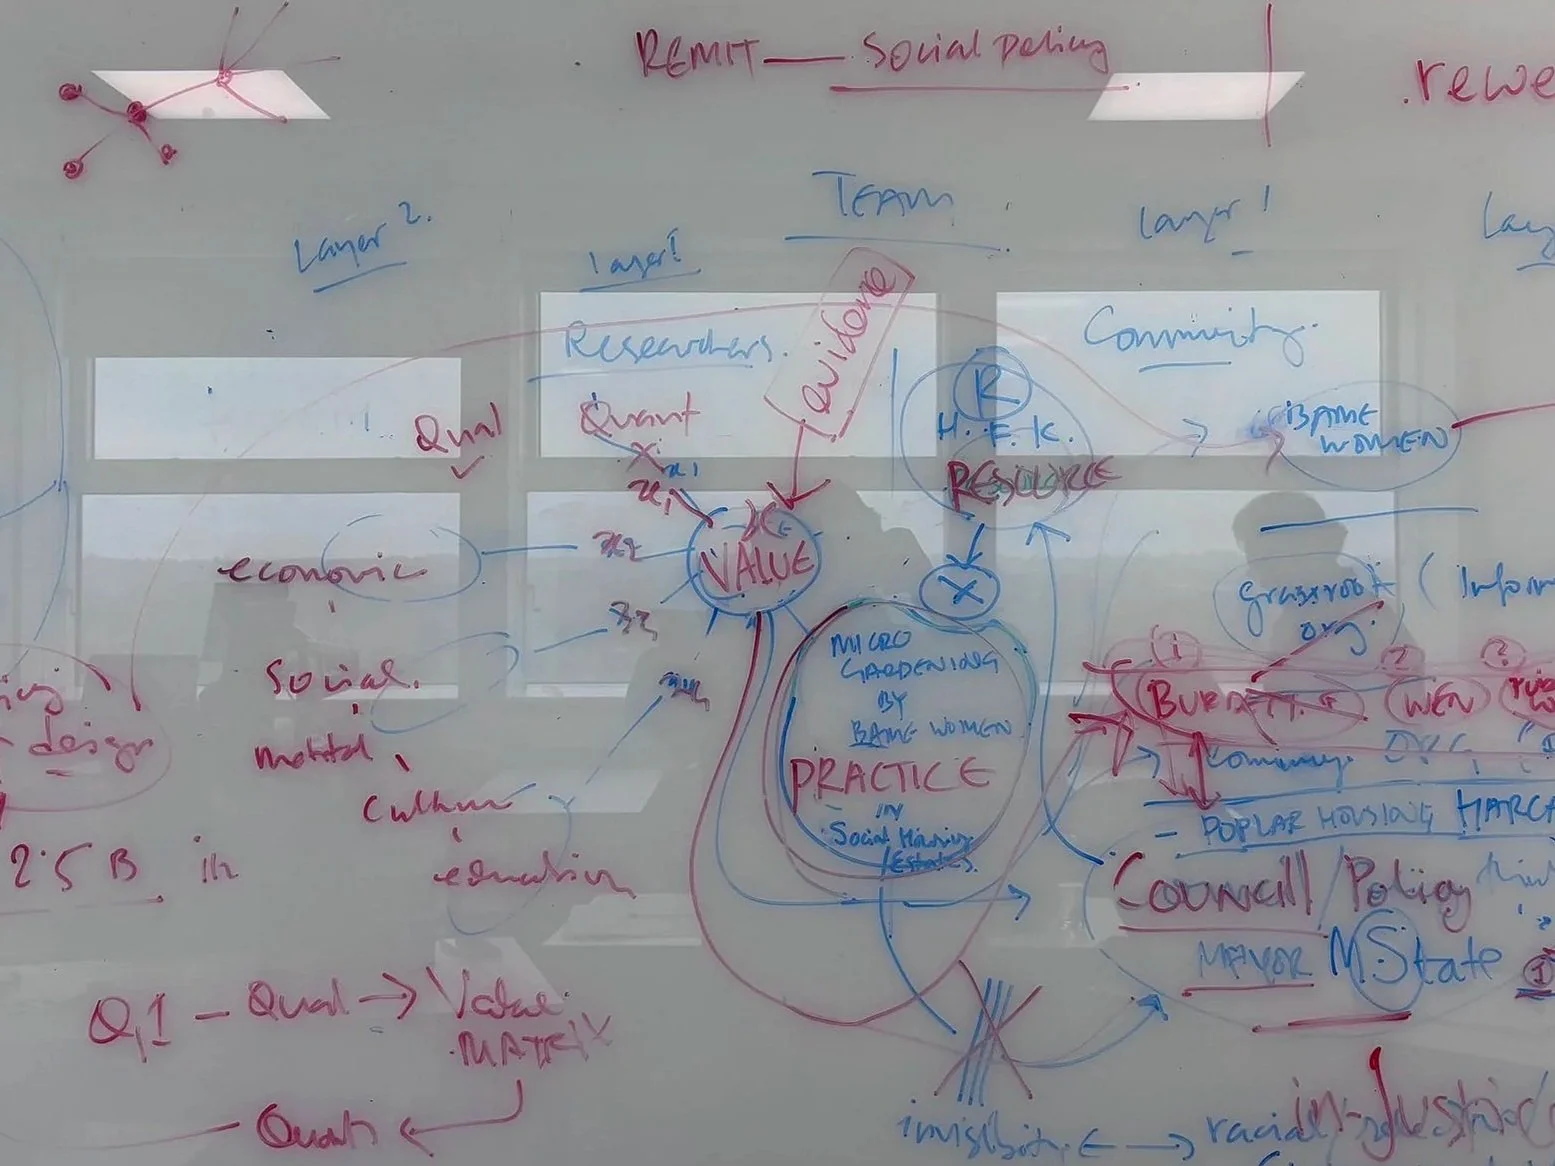 REMIT — Social Policy
rewe
TEAM
Layer 2.
Layer 1
Layer 1
Lay
evidence
Researchers.
Community.
R
H. E. K.
RESOURCE
Qual
Quant
BAME
WOMEN
x1
x1
VALUE
x2
economic
X
grassroot (Inform
org.
x3
MICRO
GARDENING
BY
BAME WOMEN
PRACTICE
IN
Social Housing
Estates.
1
2
BURDETT
WEN
x4
social.
design
mental
cultural
ORG
- POPLAR HOUSING HARCA
education
2.5 B in
COUNCIL/Policy
MAYOR
MState
1
Q1 - Qual → Value
MATRIX
Quant
invisibility ↔ racial
in-justice